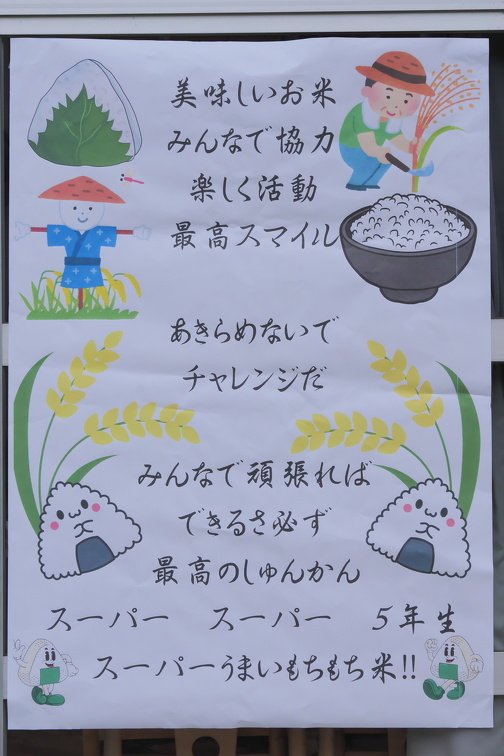 美味しいお米
みんなで協力
楽しく活動
最高スマイル
あきらめないで
チャレンジだ
みんなで頑張れば
できるさ必ず
最高のしゅんかん
スーパー　スーパー　5年生
スーパーうまいもちもち米!!